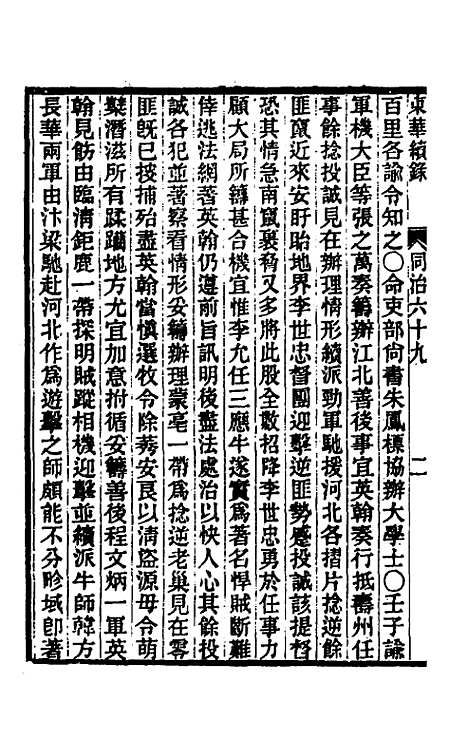 東華續錄 同治六十九 二
百里各諭令知之〇命吏部尚書朱鳳標協辦大學士〇壬子諭
軍機大臣等張之萬奏籌辦江北善後事宜英翰奏行抵壽州任
事餘捻投誠見在辦理情形續派勁軍馳援河北各摺片捻逆餘
匪竄近來安盱眙地界李世忠督團迎擊逆匪勢蹙投誠該提督
恐其情急南竄裹脅又多將此股全數招降李世忠勇於任事力
顧大局所籌甚合機宜惟李允任三應牛遂實爲著名悍賊斷難
倖逃法網著英翰仍遵前旨訊明後盡法處治以快人心其餘投
誠各犯並著察看情形妥籌辦理蒙亳一帶爲捻逆老巢見在零
匪既已搜捕殆盡英翰當愼選牧令除莠安良以清盜源毋令萌
櫱潛滋所有蹂躪地方尤宜加意拊循妥籌善後程文炳一軍英
翰見飭由臨清鉅鹿一帶探明賊蹤相機迎擊並續派牛師韓方
長華兩軍由汴梁馳赴河北作爲遊擊之師頗能不分畛域卽著